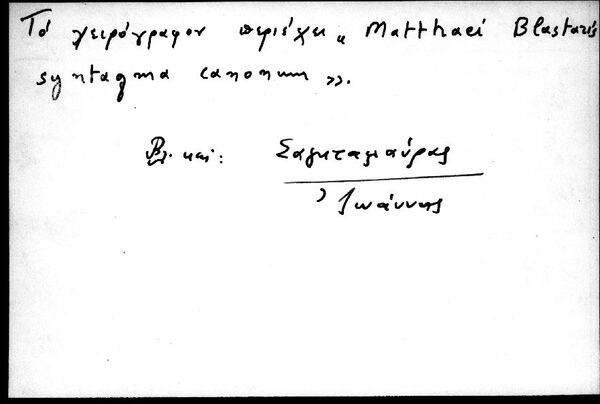 Τό χειρόγραφον περιέχει « Matthaei Blastaris
syntagma canonum ».
Βλ. καί: Σαγκταμαύρας
Ἰωάννης